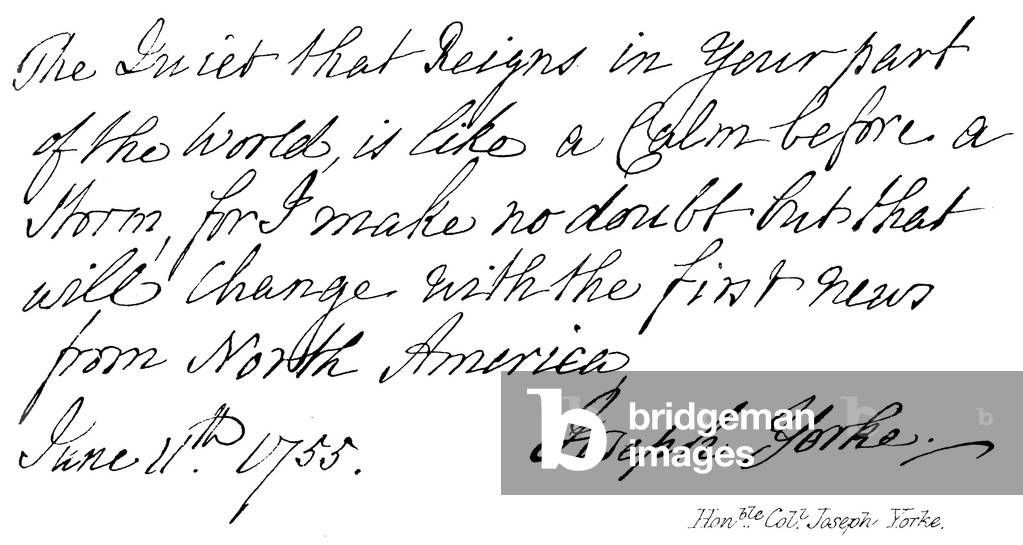 The Quiet that Reigns in Your part
of the World, is like a Calm before a
Storm, for I make no doubt but that
will change with the first news
from North America,
June 11th. 1755.
Joseph Yorke.
b bridgeman images
b
Honble. Coll. Joseph Yorke.